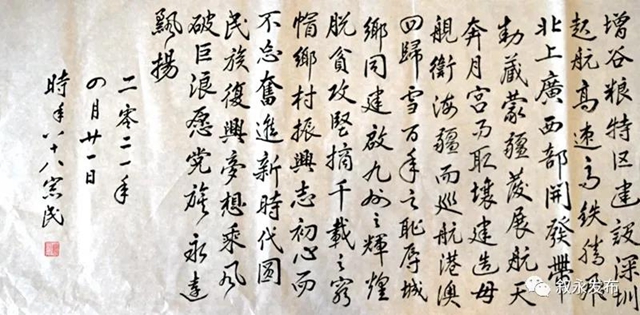 增谷粮特区建設深圳
起航高速高铁腾飛
北上廣西部開發帶
動藏蒙疆發展航天
奔月宫而取壤建造母
艦衛海疆而巡航港澳
回歸雪百年之耻辱城
鄉同建啟九州之輝煌
脱貧攻堅摘千載之穷
帽鄉村振興志初心而
不忘奮進新時代圆
民族復興夢想乘风
破巨浪愿党旗永遠
飄揚
二零二一年
四月廿一日
時年八十八宗民
叙永发布